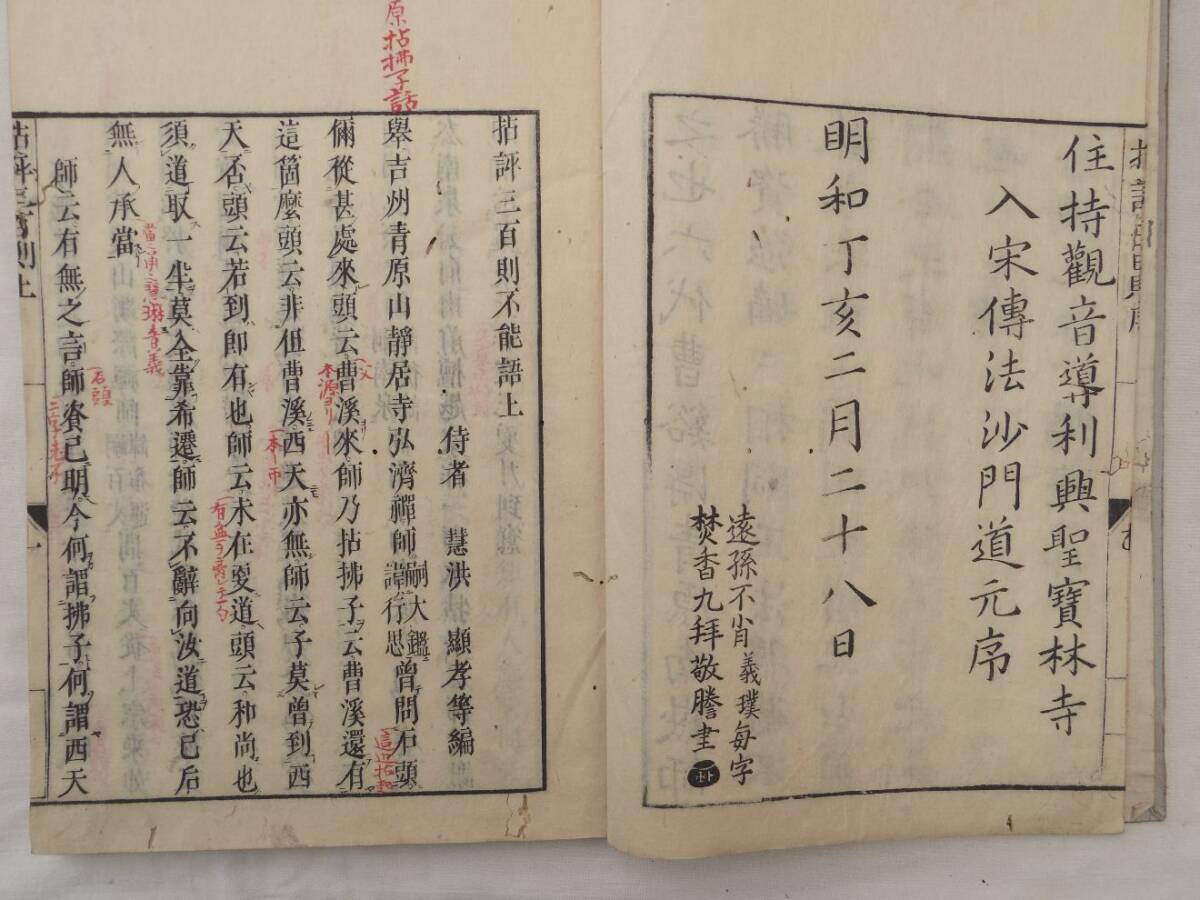 住持觀音導利興聖寶林寺
入宋傳法沙門道元序
明和丁亥二月二十八日
遠孫不肖義璞每字
焚香九拜敬謄書
拈評三百則不能語上
侍者 慧洪 顯孝等編
舉吉州青原山靜居寺弘濟禪師嗣大鑑諱行思曾問石頭
儞從甚處來頭云曹溪來師乃拈拂子云曹溪還有
這箇麼頭云非但曹溪西天亦無師云子莫曾到西
天否頭云若到卽有也師云未在更道頭云和尚也
須道取一半莫全靠希遷師云不辭向汝道恐已后
無人承當
師云有無之言師資已明今何謂拂子何謂西天
原拈拂子話
石頭
拈評三百則上